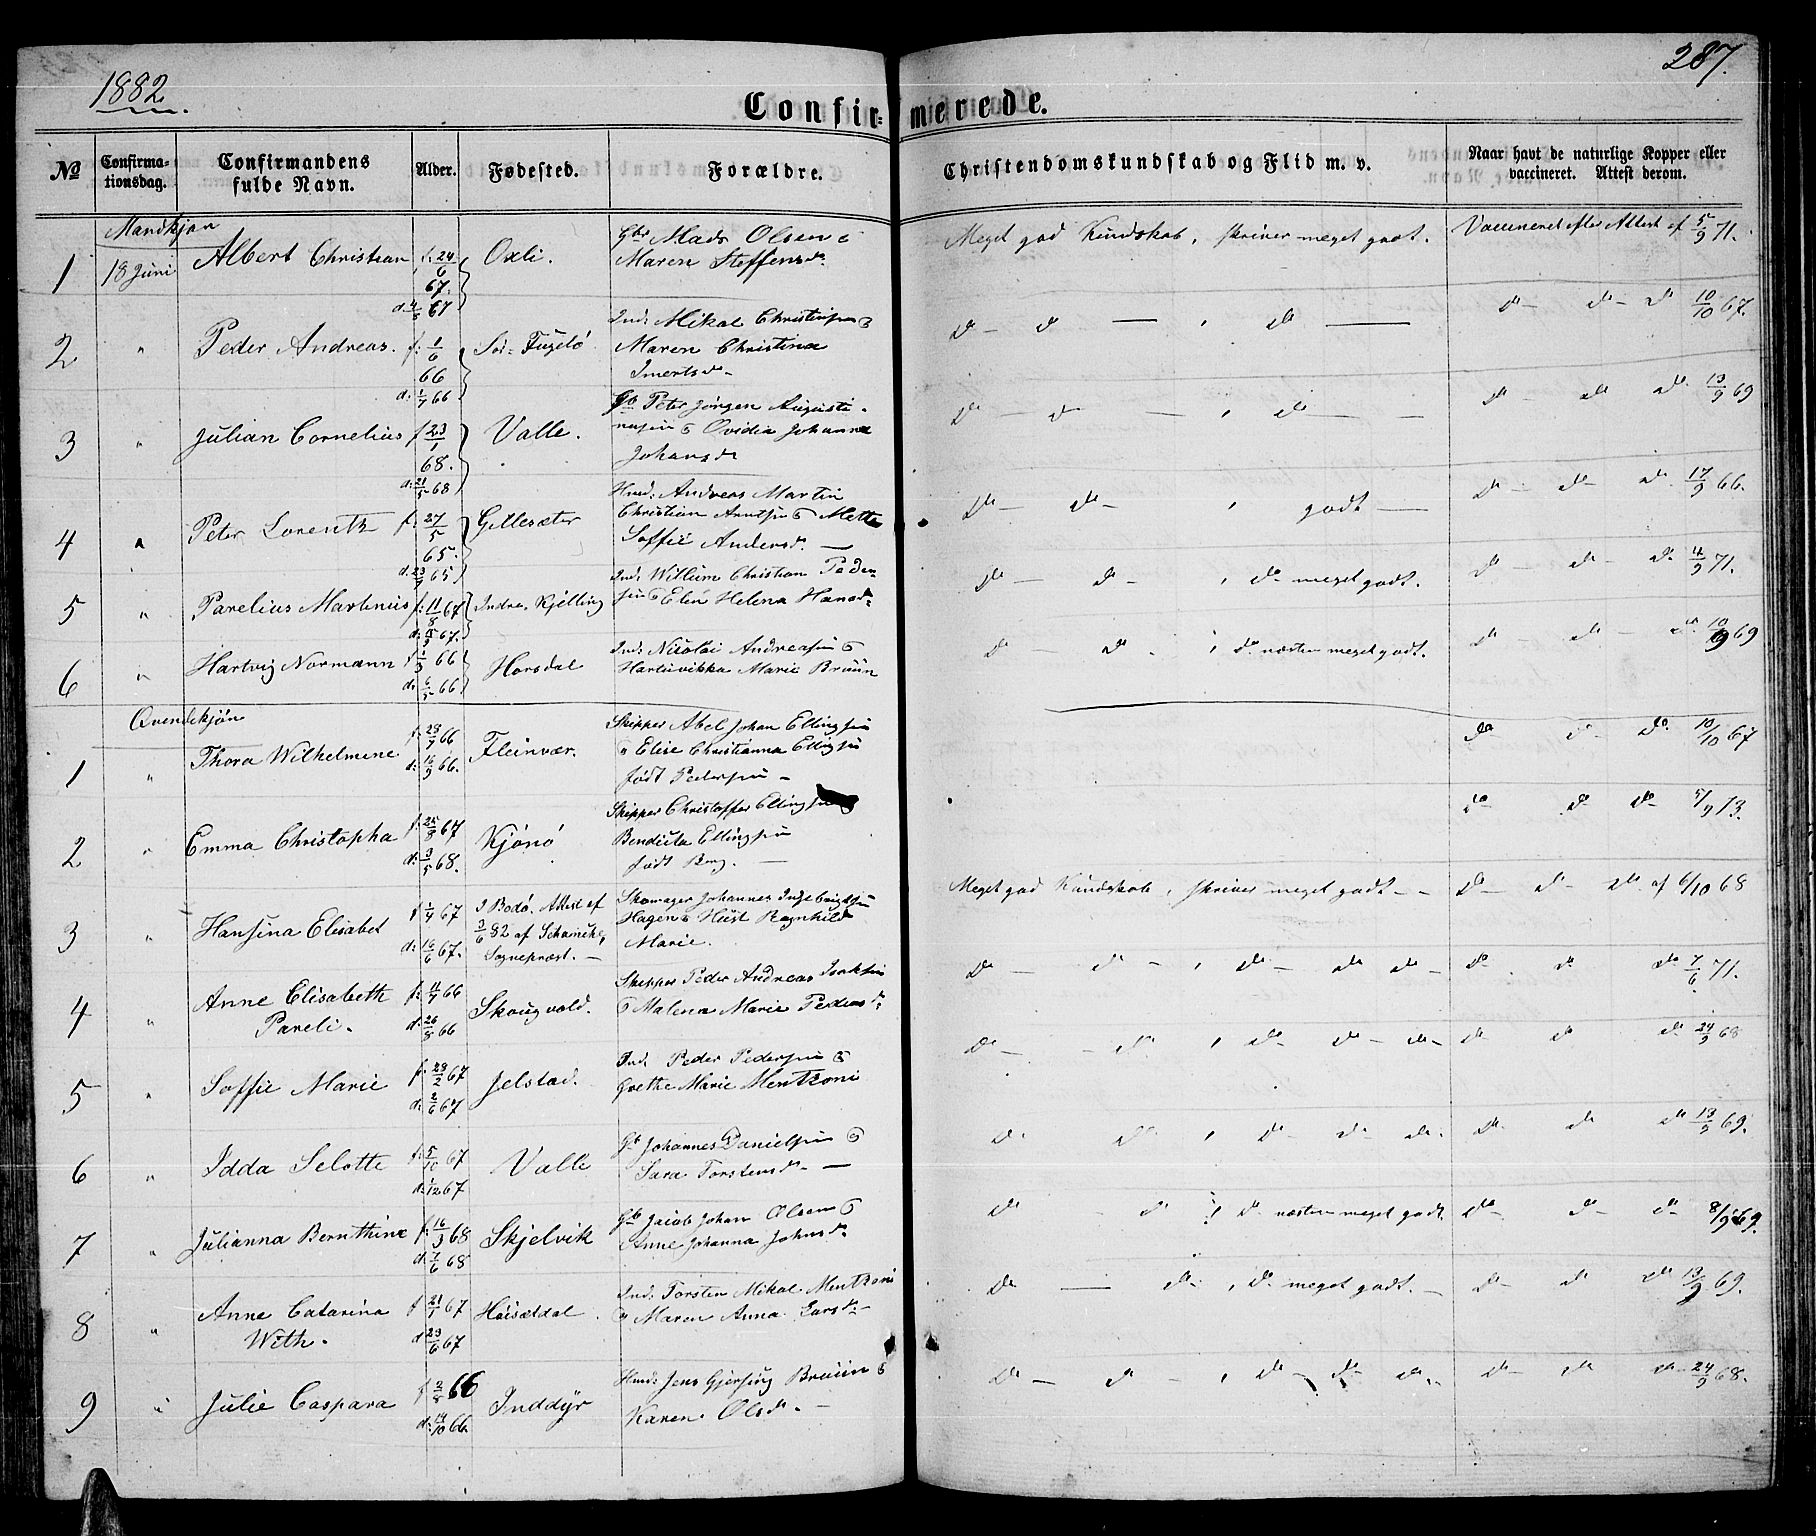 1882.
287.
Confirmerede.
No
Confirmationsdag.
Confirmandens fulde Navn.
Alder.
Fødested.
Forældre.
Christendomskundskab og Flid m. v.
Naar havt de naturlige Kopper eller vaccineret. Attest derom.
Mandkjøn
1 18 Juni Albert Christian f. 24/6 67. d. 4/8 67 Oxli. Gbr Mads Olsen & Maren Steffensdr. Meget god Kundskab, skriver meget godt. Vaccineret efter Attest af 5/9 71.
2 " Peder Andreas. f. 1/6 66 d. 1/7 66 Sør-Fugelø Ind. Mikal Christensen & Maren Christina Imertsdr. do - do - , do - do - do - do 10/10 67.
3 " Julian Cornelius f. 23/1 68. d. 21/5 68 Valle. Gb Peter Jørgen Augustinusen & Ovidia Johanna Johansdr do - do - , do - do - do do 13/9 69
4 " Peter Lorentz f. 27/5 65. d. 23/7 65 Gillesæter Husd. Andreas Martin Christian Arntsen & Mette Soffie Andersdr. do - do - , godt - do - do - do. 17/9 66.
5 " Parelius Martinus f. 11/8 67 Indre Kjelling Ind. Willum Christian Pedersen & Elen Helena Hansdr. do - do - , do meget godt. do - do - do 4/9 71.
6 " Hartvig Normann 66 d. 6/5 66 Horsdal Ind. Nicolai Andreasen & Hartvikka Marie Bruun do - do. , do næsten meget godt. do - do - do 10/9 69
Qvindekjøn
1 " Thora Wilhelmine f. 23/7 66 d. 16/9 66. Fleinvær. Skipper Abel Johan Ellingsen & Elise Christianna Ellingsen født Pedersen - do do - do. 10/10 67
2 " Emma Christopha f. 25/8 67 d. 3/5 68. Kjønø Skipper Christoffer Ellingsen Bendicta Ellingsen født Berg. - do do do 5/9 73.
3 " Hansina Elisabet f. 1/4 67 d. 16/6 67. I Bodø. Attest af 3/6 82 af Sognepræst. - Skomager Johannes Ingebrigtsen Hagen & Hust Ragnhild Marie. Meget god Kundskab, skriver meget godt - - do - do - do af 6/10 68
4 " Anne Elisabeth Pareli. f. 11/7 66 d. 26/8 66 Skougvold. Skipper Peder Andreas Isaksen & Malena Marie Pedersdr. do - do - , do - do do do. do do 7/6 71.
5 " Soffie Marie f. 23/2 67 d. 2/6 67 Jelstad. Ind. Peder Pedersen & Grethe Marie Mentzoni do - - do , do - do - do - do do do 24/9 68
6 " Idda Selotte f. 5/10 67 d. 1/12 67 Valle Gb Johannes Danielsen & Sara Torstensdr. - do. do , do - do - do. do - do do 13/9 69.
7 " Julianna Bernthine f. 16/3 68 d. 7/6 68 Skjelvik Gb Jacob Johan Olsen & Anne Johanna Johnsdr. do - do , do næsten meget godt. do - do - do - 8/9 69.
8 " Anne Catarina With. f. 21/1 67 d. 23/6 67 Høisætdal. Ind. Torsten Mikal Mentzoni & Maren Anna Larsdr. - do - do - , do meget godt. - do - do do 13/9 69.
9 " Julie Caspara f. 2/8 66 d. 14/10 66. Inddyr Husd. Jens Gjersing Bruun & Karen Olsdr. - do - do - , do - do - do. - do - do do 24/9 68.